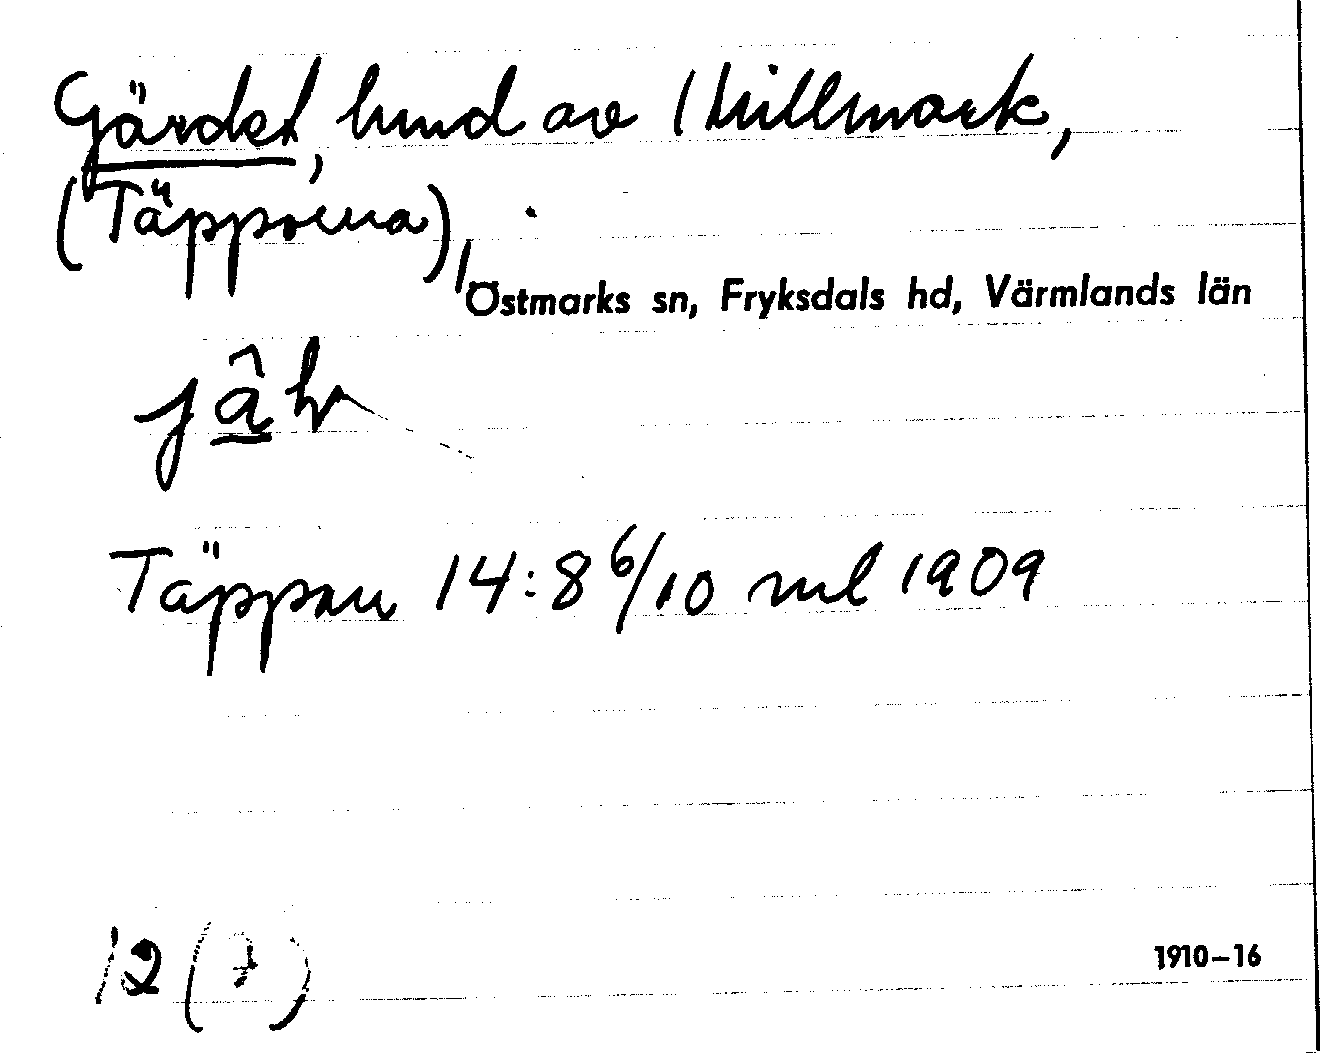 Gärdet, hmd av 1 Millmark,
(Täpporna),
Östmarks sn, Fryksdals hd, Värmlands län
jâ
Täppan 14:8 6/10 ml 1909
12 (7)
1910–16